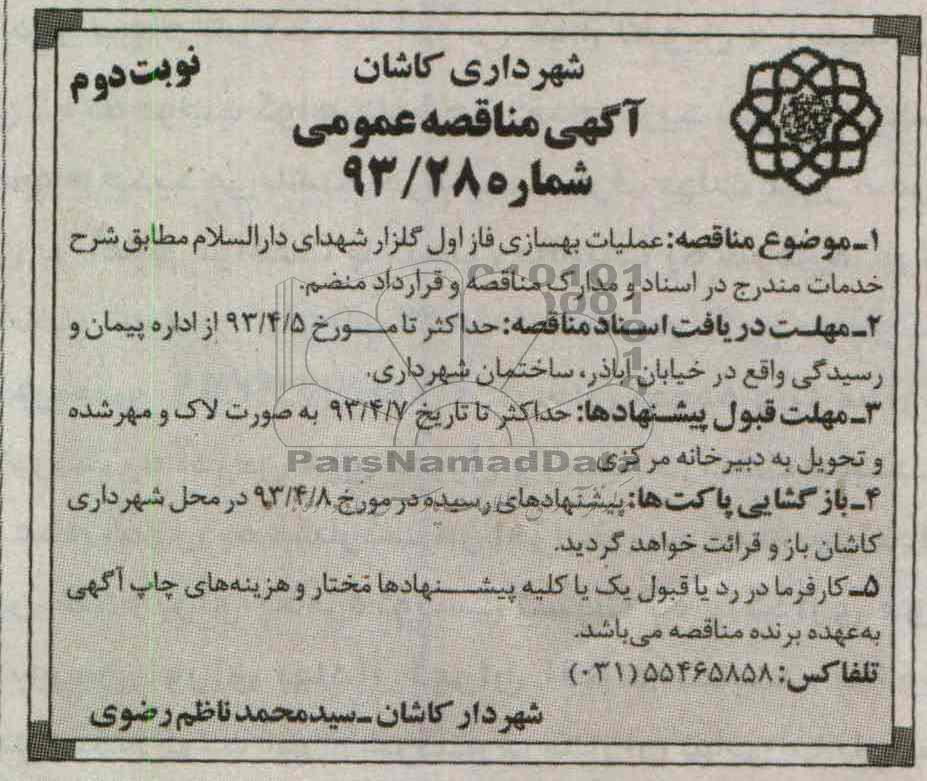 شهرداری کاشان
نوبت دوم
آگهی مناقصه عمومی
شماره ۹۳/۲۸
۱ـ موضوع مناقصه: عملیات بهسازی فاز اول گلزار شهدای دارالسلام مطابق شرح
خدمات مندرج در اسناد و مدارک مناقصه و قرارداد منضم.
۲ـ مهلت دریافت اسناد مناقصه: حداکثر تا مورخ ۹۳/۴/۵ از اداره پیمان و
رسیدگی واقع در خیابان اباذر، ساختمان شهرداری.
۳ـ مهلت قبول پیشنهادها: حداکثر تا تاریخ ۹۳/۴/۷ به صورت لاک و مهرشده
و تحویل به دبیرخانه مرکزی
ParsNamadData
۴ـ بازگشایی پاکت‌ها: پیشنهادهای رسیده در مورخ ۹۳/۴/۸ در محل شهرداری
کاشان باز و قرائت خواهد گردید.
۵ـ کارفرما در رد یا قبول یک یا کلیه پیشنهادها مختار و هزینه‌های چاپ آگهی
به‌عهده برنده مناقصه می‌باشد.
تلفاکس: ۵۵۴۶۵۸۵۸ (۰۳۱)
شهردار کاشان ـ سیدمحمد ناظم رضوی